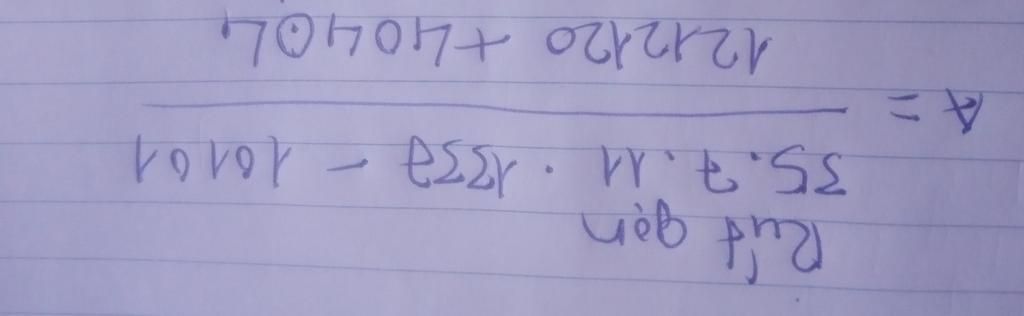 Rút gọn
35.7.11.1337 - 10101
A =
1212120 + 40404